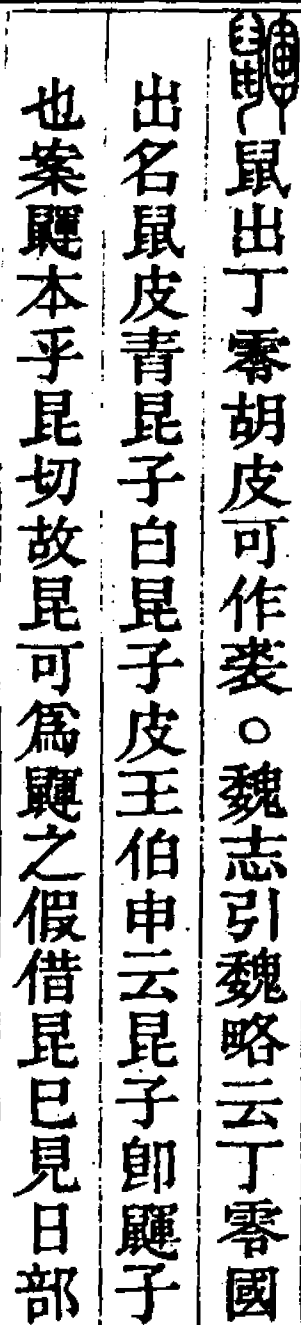 鼲鼠出丁零胡皮可作裘○魏志引魏略云丁零國
出名鼠皮青昆子白昆子皮王伯申云昆子卽鼲子
也案鼲本乎昆切故昆可爲鼲之假借昆巳見日部